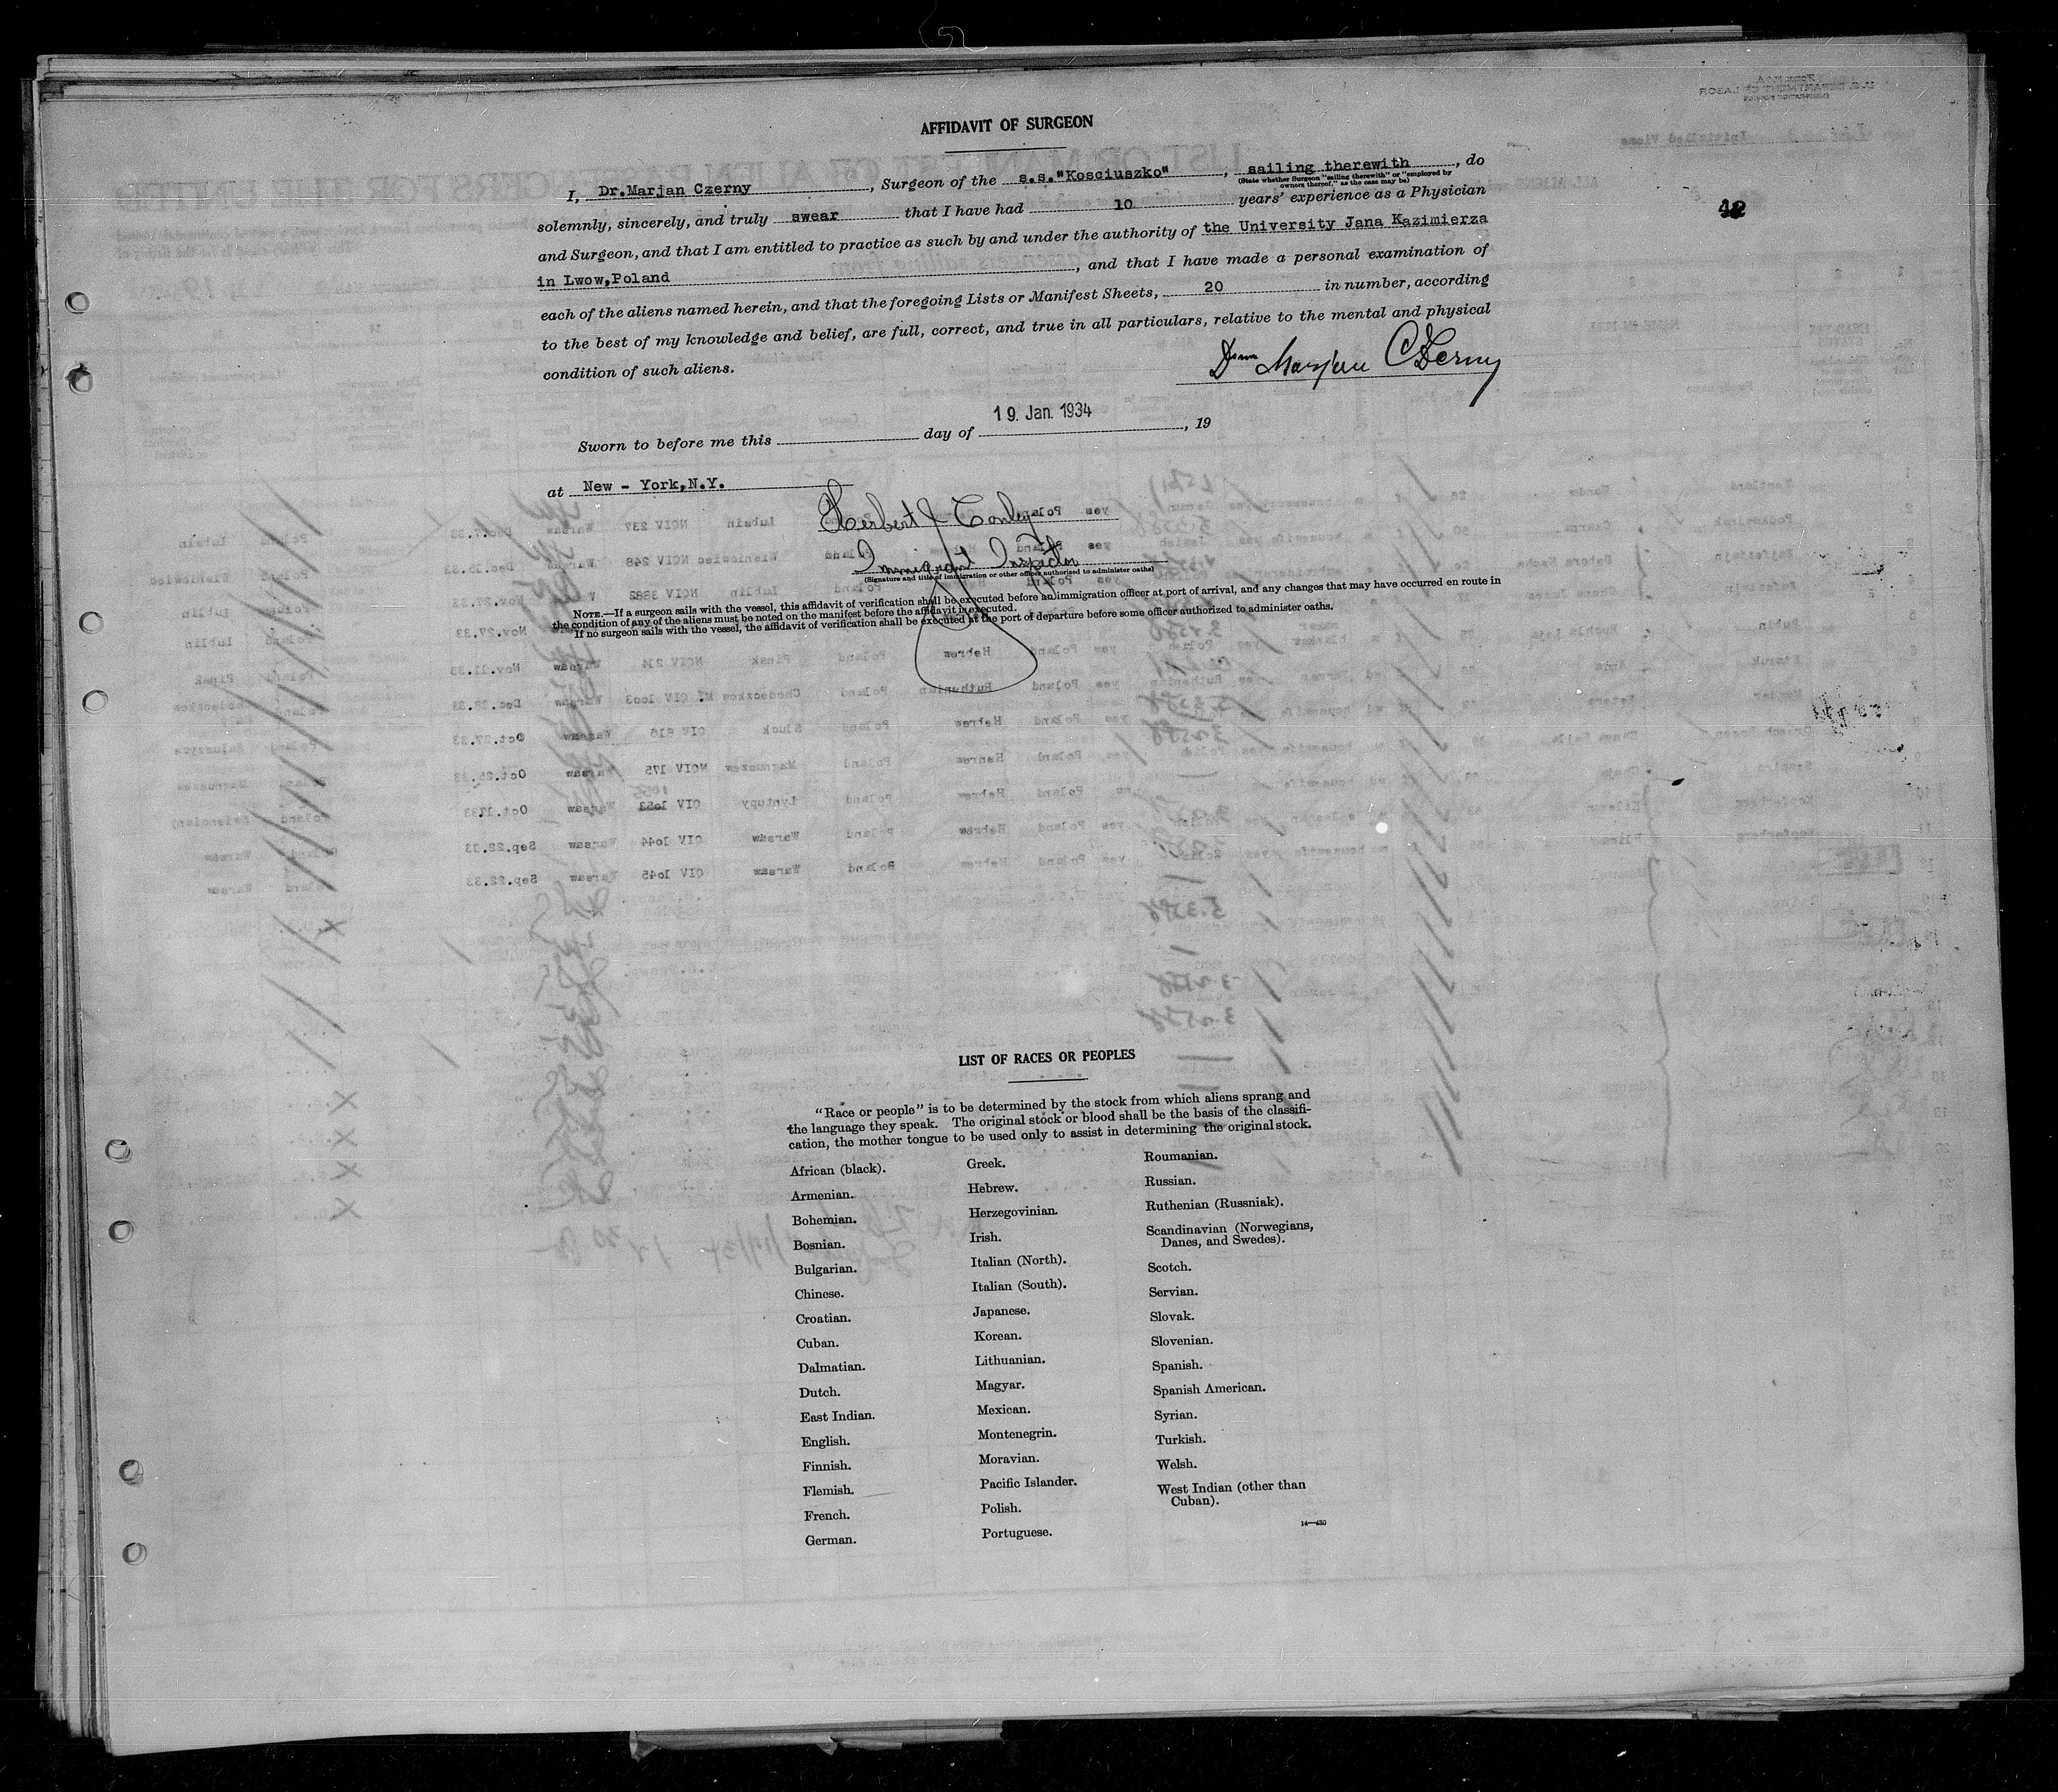 AFFIDAVIT OF SURGEON
I, Dr.Marjan Czerny, Surgeon of the s.s."Kosciuszko", sailing therewith, do
(State whether Surgeon "sailing therewith" or "employed by
owners thereof," as the case may be)
solemnly, sincerely, and truly swear that I have had 10 years' experience as a Physician
42
and Surgeon, and that I am entitled to practice as such by and under the authority of the University Jana Kazimierza
in Lwow,Poland, and that I have made a personal examination of
each of the aliens named herein, and that the foregoing Lists or Manifest Sheets, 20 in number, according
to the best of my knowledge and belief, are full, correct, and true in all particulars, relative to the mental and physical
condition of such aliens.
Marjan Czerny
19. Jan. 1934
Sworn to before me this day of , 19
at New - York,N.Y.
Herbert J Conley
Immigrant Inspector
(Signature and title of immigration or other officer authorized to administer oaths)
NOTE.—If a surgeon sails with the vessel, this affidavit of verification shall be executed before an immigration officer at port of arrival, and any changes that may have occurred en route in
the condition of any of the aliens must be noted on the manifest before the affidavit is executed.
If no surgeon sails with the vessel, the affidavit of verification shall be executed at the port of departure before some officer authorized to administer oaths.
LIST OF RACES OR PEOPLES
"Race or people" is to be determined by the stock from which aliens sprang and
the language they speak. The original stock or blood shall be the basis of the classifi-
cation, the mother tongue to be used only to assist in determining the original stock.
African (black).
Armenian.
Bohemian.
Bosnian.
Bulgarian.
Chinese.
Croatian.
Cuban.
Dalmatian.
Dutch.
East Indian.
English.
Finnish.
Flemish.
French.
German.
Greek.
Hebrew.
Herzegovinian.
Irish.
Italian (North).
Italian (South).
Japanese.
Korean.
Lithuanian.
Magyar.
Mexican.
Montenegrin.
Moravian.
Pacific Islander.
Polish.
Portuguese.
Roumanian.
Russian.
Ruthenian (Russniak).
Scandinavian (Norwegians,
Danes, and Swedes).
Scotch.
Servian.
Slovak.
Slovenian.
Spanish.
Spanish American.
Syrian.
Turkish.
Welsh.
West Indian (other than
Cuban).
14—430